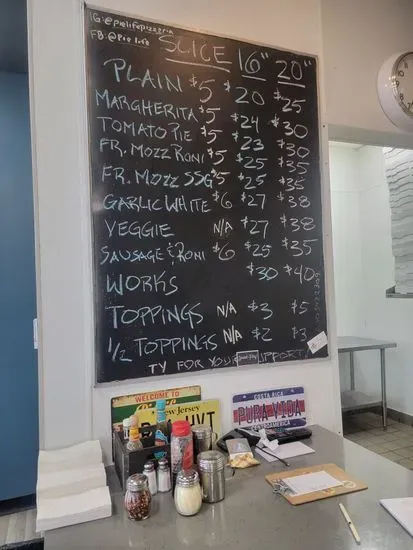 IG:@pielifepizzeria
FB:@Pie Life
SLICE 16" 20"
PLAIN $5 $20 $25
MARGHERITA $5 $24 $30
TOMATO PIE $5 $23 $30
FR. MOZZ RONI $5 $25 $35
FR. MOZZ SSG $5 $25 $35
GARLIC WHITE $6 $27 $38
VEGGIE N/A $27 $38
SAUSAGE & RONI $6 $25 $35
WORKS $30 $40
TOPPINGS N/A $3 $5
1/2 TOPPINGS N/A $2 $3
TY FOR YOUR SUPPORT
WELCOME TO
New Jersey
HVT
COSTA RICA
PURA VIDA
CENTROAMERICA